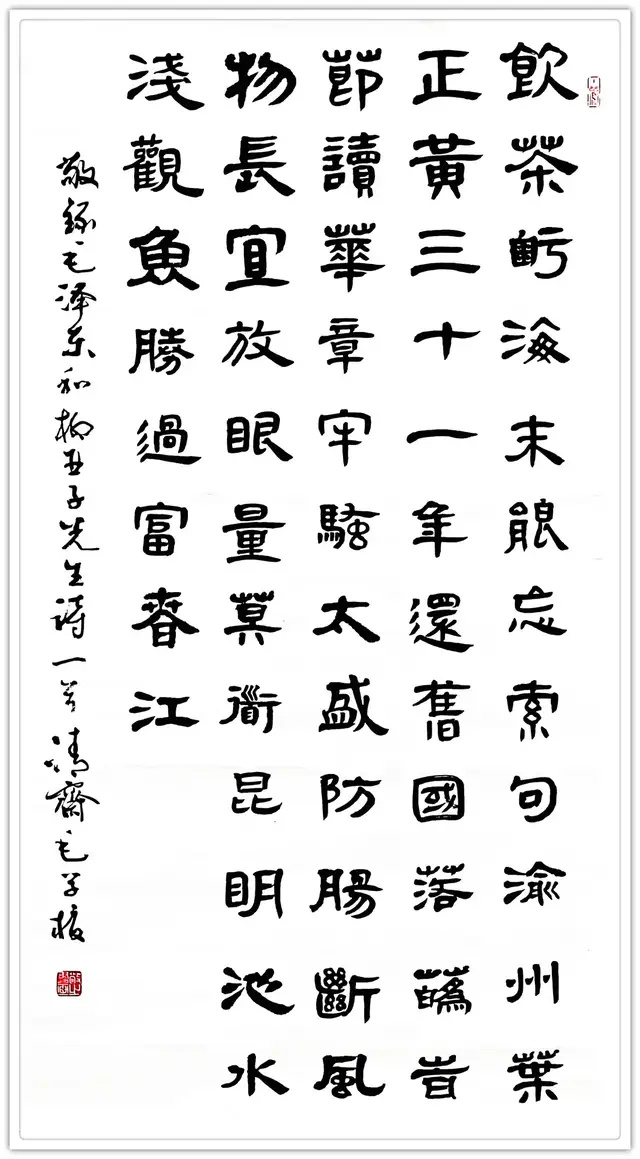 飲茶粵海未能忘索句渝州葉
正黃三十一年還舊國落蘤旹
節讀華章牢騷太盛防腸斷風
物長宜放眼量莫衟昆明池水
淺觀魚勝過富春江
敬錄毛泽东和柳亚子先生詩一首清齋毛学